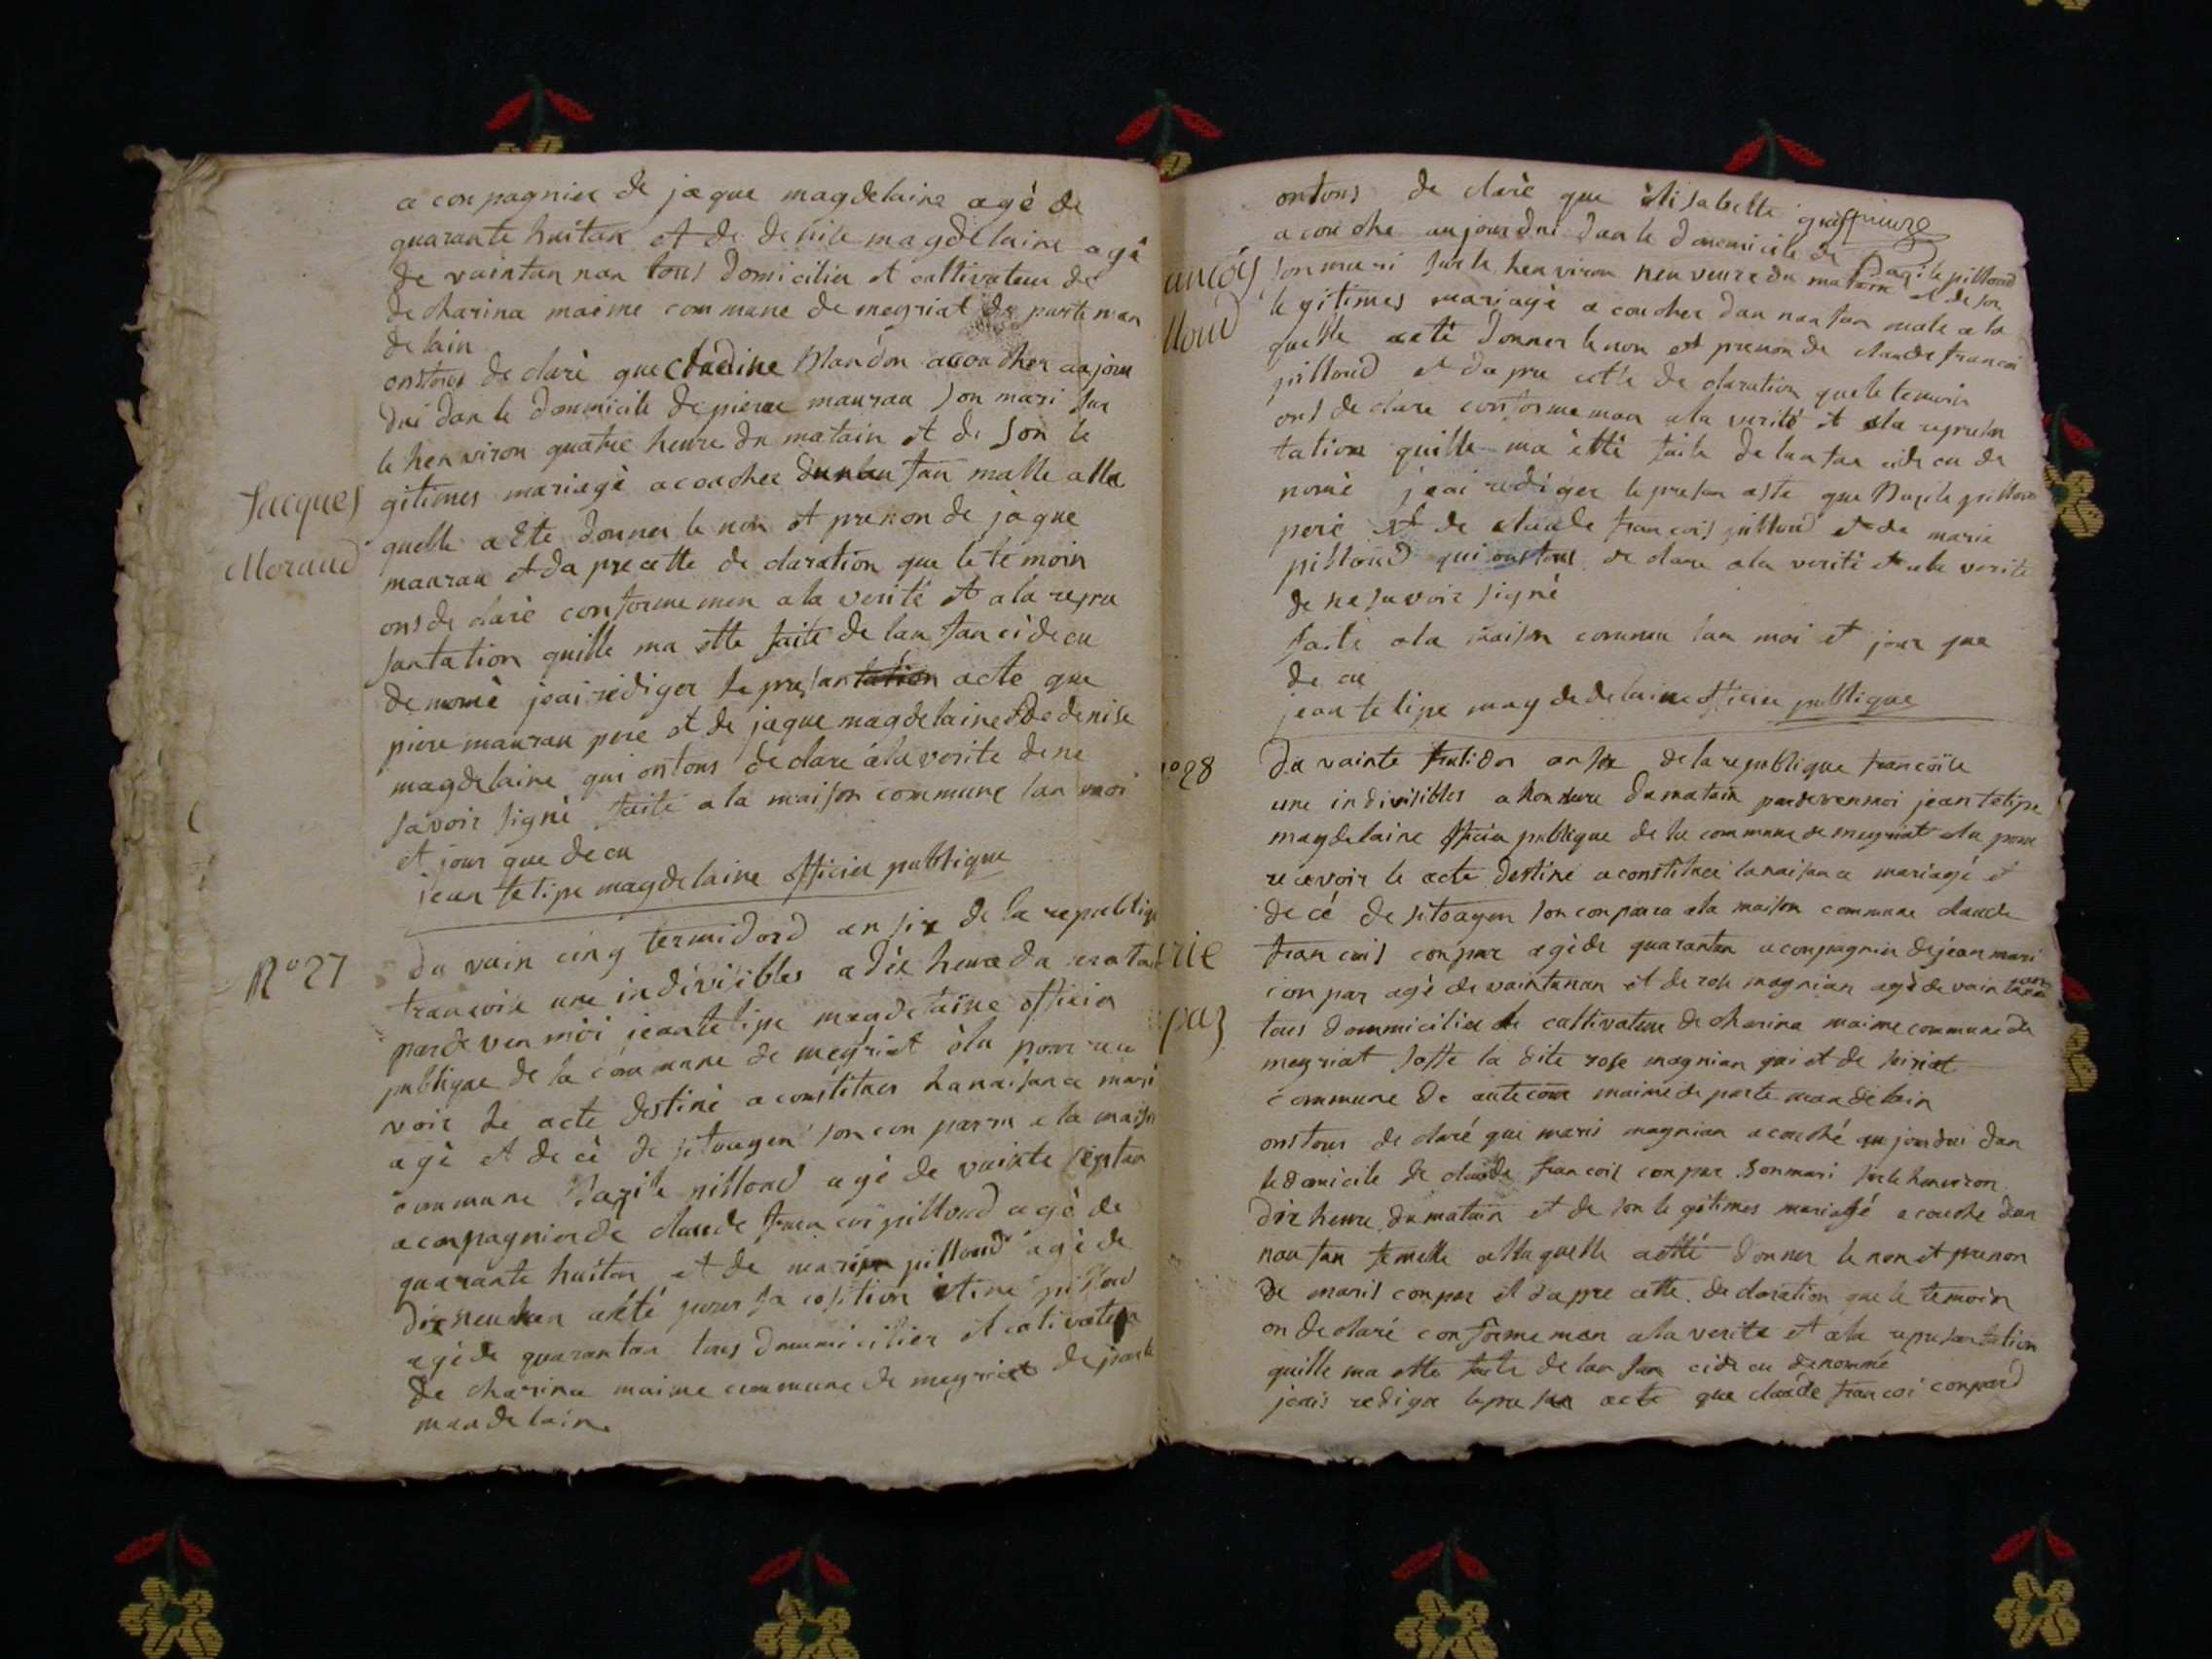 a conpagnier de jaque magdelaine agè de
quarante huitan et de denise magdelaine agè
de vaintan nan tous domicilier et cultivateur de
de charina maime commune de meyriat de parteman
de lain
onstous de clarè que claudine blandon acoucher aujour
dui dan le dommicile de pierre mauran son mari sur
le henviron quatre heure du matain et de son le
Jacques
gitimes mariagè acoucher dunlan fan malle alla
quelle a ete donner le non et prenon de jaque
Moraud
mauran et da pre cette de claration que le te moin
ons de clarè conforme men a la verité et a la repre
santation quille ma ette faite de lan fan ci de cu
de nomè jeai rèdiger le presantation acte que
piere mauran pere et de jaque magdelaine et de denise
magdelaine qui ontous declare a la verite de ne
savoir signè faite a la maison commune lan moi
et jour que de cu
jean felipe magdelaine officier publique
N° 27
du vain cinq termidord an six de la republique
francoise une indivisibles a dix heure du mata
par de ven moi jean felipe magdelaine officier
publique de la commune de meyriat èlu pour re ce
voir le acte destinè a constituer la naisance mari
agè et de cè de sitoayen son con parru a la maison
commune Bazile pilloud agè de vainte septan
aconpagnier de claude francoi pilloud agè de
quarante huitan et de marie pilloud agè de
dixneuvan
agè de quarantan tous dommicilier et cultivateur
de charina maime commune de meyriat de parte
man de lain
ontous de clarè que èlisabette
acouche aujourdui dan le domicile de Bazile pilloud
ancois
son mari sur le henviron neuveure du matain et de son
le gitimes mariagè acoucher dan nan fan male a la
lloud
quelle aeté donner le non et prenon de claude francoi
pilloud et da pre cette de claration que le temoin
ons de clare conforme man a la verité et a la represen
tation quille ma èttè faite de lan fan ci de cu de
nomè jeai rediger le presan acte que Bazile pilloud
perè et de claude francois pilloud et de marie
pilloud qui onstous de clare a la verité et a la verite
de ne savoir signè
faite a la maison commune lan moi et jour que
de cu
jean felipe magdedelaine officier publique
n° 28
du vainte fruitidor an six de la republique francoise
une indivisibles a honseure du matain pardevenmoi jean felipe
magdelaine officier publique de la commune de meyriat elu pour
recevoir le acte destinè a constituer la naisance mariagè et
de cé de sitoayen son conparu a la maison commune claude
rie
francois conpar agè de quarantan aconpagnier de jean mari
conpar agè de vaintanan et de rose magnian agè de vain
paz
tous dommicilier de cultivateur de charina maime commune de
meyriat saffe la dite rose magnian qui et de seiriat
commune de autecour maime de parte man de lain
onstous de claré que maris magnian acouché aujourdui dan
le domicile de claude francois conpar son mari sur le henviron
dix heure du matain et de son le gitimes mariagé acouche dan
nan fan femelle alla quelle aetté donner le non et prenon
de maris conpar et dapre cette de claration que le temoin
on declaré conformeman a la verite et a la representation
quille ma ette faite de lan fan ci de cu denommé
jeais rediger le pre san acte que claude francoi conpard